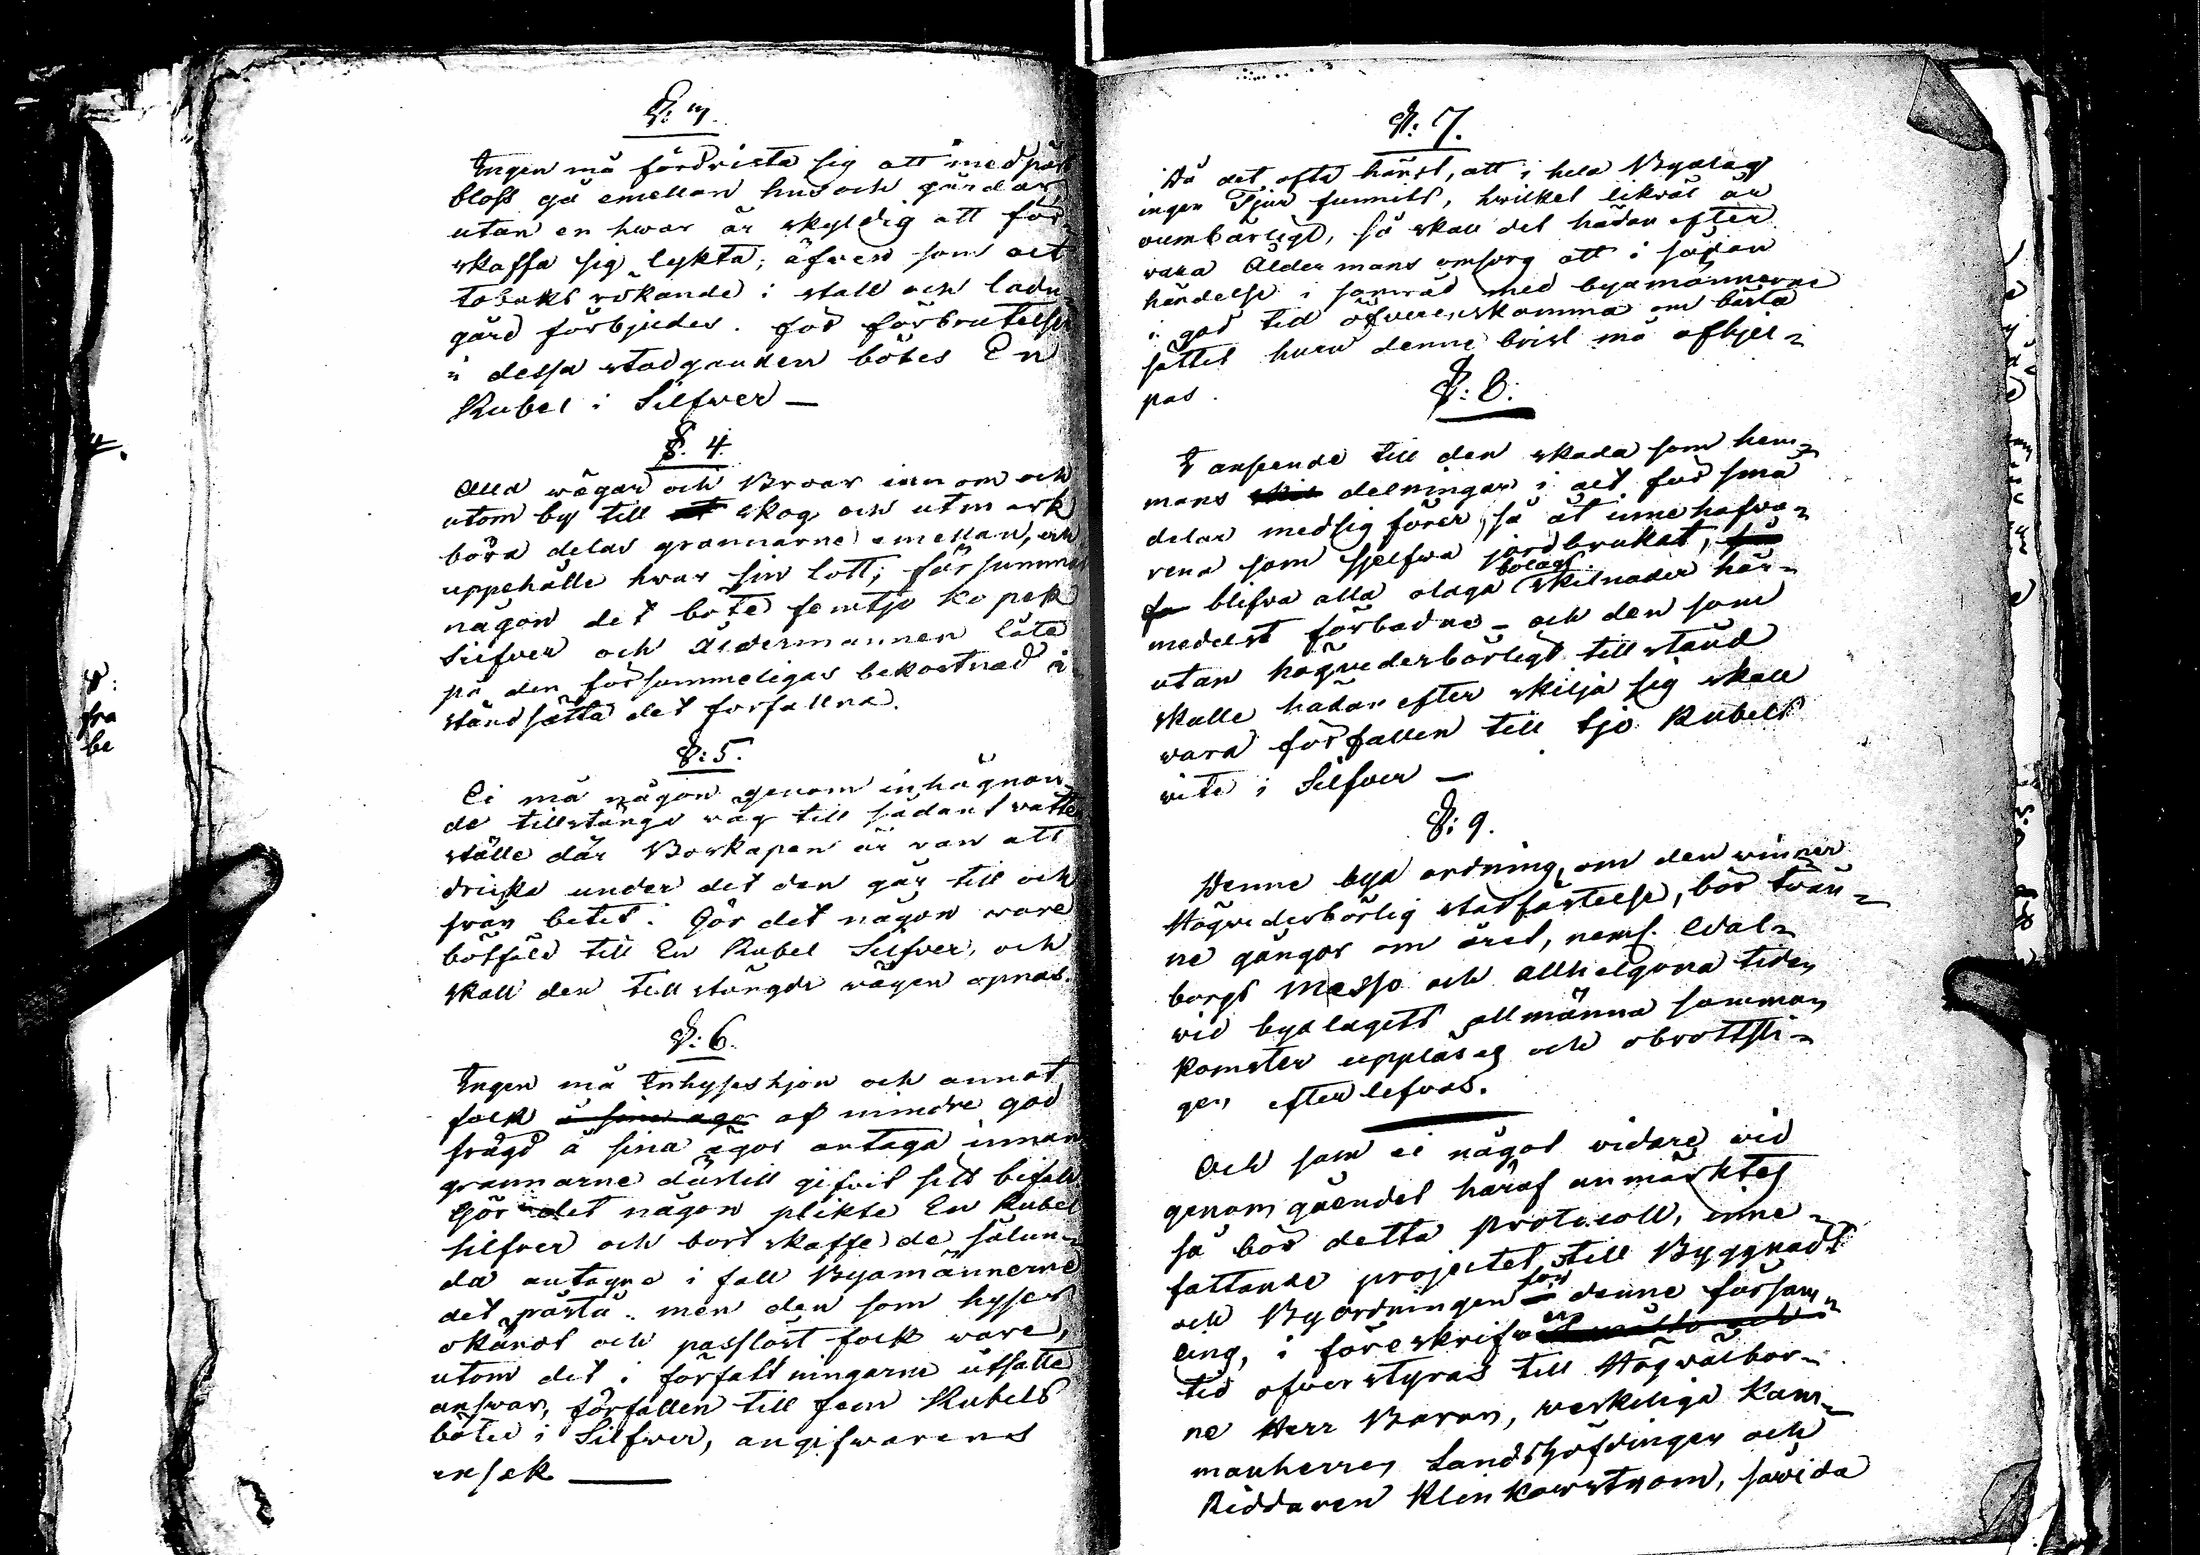 §: 3.
Ingen må fördrista sig att med pärt
bloss gå emellan hus och gårdar
utan en hwar är skyldig att för-
skaffa sig lykta; äfwen som alt
tobaks rökande i stall och ladu
gård förbjudes. för förbrutelser
i dessa stadganden bötes En
Rubel i Silfwer —
§. 4.
Alla wägar och Broar innom och
utom by till skog och utmark
böra delas grannarne emellan, och
uppehålle hwar sin lott; försummar
någon det böte femtjo kopek
Silfver och Åldermannen låte
på den försummeligas bekostnad i
ståndsätta det förfallna.
§: 5.
Ei må någon genom inhägnan-
de tillstänga wäg till sådant watte
ställe där Boskapen är van att
dricka under det den går till och
från betet. Gör det någon ware
bötfäld till En Rubel Silfver, och
skall den till stängde wägen öpnas.
§: 6.
Ingen må Inhyses hjon och annat
folk å sina ägor af mindre god
frägd å sina ägor antaga innan
grannarne därtill gifvit sitt bifall
Gör det någon plikte En Rubel
silfver och bort skaffe de sålun-
da antagne i fall Byamännerne
det påstå. men den som hyser
okändt och passlöst folk ware,
utom det i författningarne utsatte
answar, förfallen till fem Rubels
böter i Silfwer, angifwarens
ensak —
§: 7.
Då det ofta händt, att i hela Byalag
ingen Tjur funnits, hwilket likwäl är
oumbärligt, så skall det hädan efter
wara Åldermans omsorg att i sådan
händelse i samråd med byamännerne
i god tid öfwerenskomma om bästa
sättet huru denne brist må afhjel-
pas.
§: 8:
I anseende till den skada som hem-
mans delningar i alt för små
delar medsig förer, så åt innehafva-
rena som sjelfwa jordbruket,
bolags
blifva alla olaga skilnader här-
medelst förbudne - och den som
utan högvederbörligt tillstånd
skulle hädan efter skilja sig skall
wara förfallen till tjo Rubels
wite i Silfver —
§: 9.
Denne bya ordning, om den winner
Högvederbörlig stadfästelse, bör twän-
ne gångor om året, neml. Wal-
borgs Messo och Allhelgona tiden
wid byalagets allmänna samman
komster uppläsas och obrottsli-
gen efterlefvas.
Och som ei något widare wid
genomgåendet häraf anmärktes
så bör detta protocoll, inne-
fattande projectet till Byggnads
och Byordningen för denne försam-
ling, i föreskrifwen
tid öfverstyras till Högwälbor-
ne Herr Baron, werkeliga Kam-
marherren Landshöfdingen och
Riddaren Klinkowström, såwida